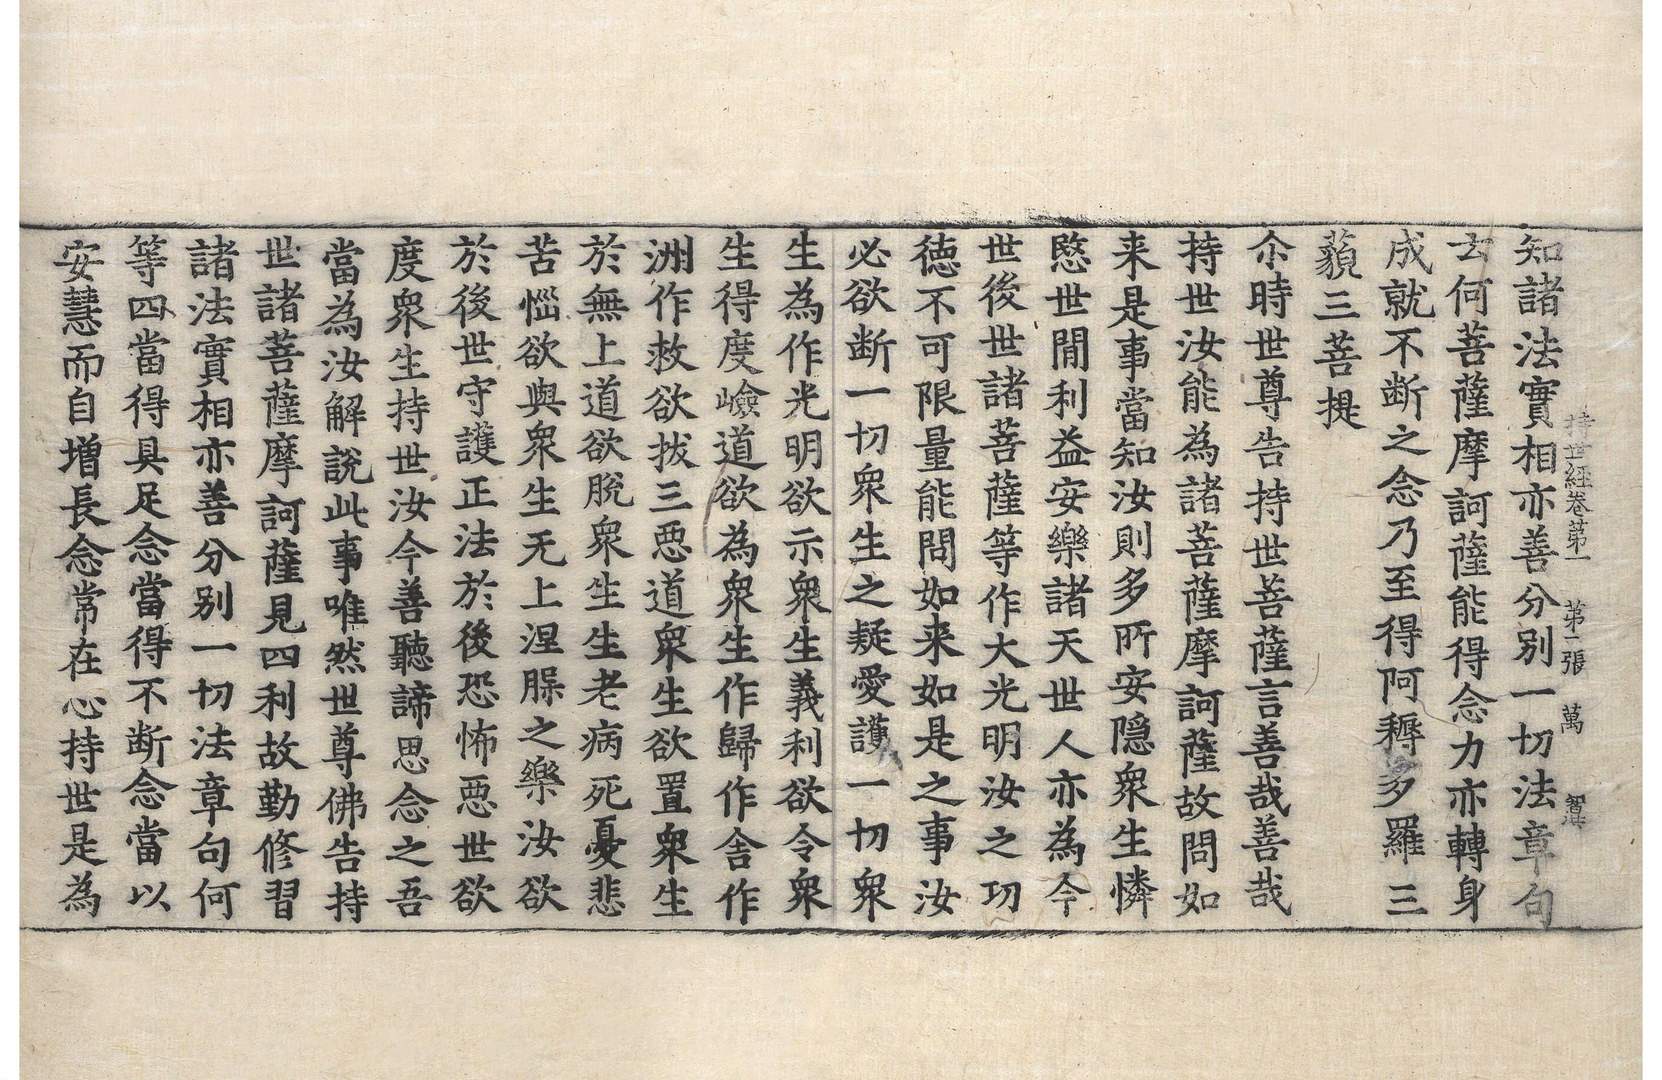 持世經卷第一　第二張　萬
知諸法實相亦善分别一切法章句
云何菩薩摩訶薩能得念力亦轉身
成就不断之念乃至得阿耨多羅三
藐三菩提
尒時世尊告持世菩薩言善哉善哉
持世汝能為諸菩薩摩訶薩故問如
来是事當知汝則多所安隠衆生憐
愍世閒利益安樂諸天世人亦為今
世後世諸菩薩等作大光明汝之功
德不可限量能問如来如是之事汝
必欲断一切衆生之疑愛護一切衆
生為作光明欲示衆生義利欲令衆
生得度嶮道欲為衆生作歸作舎作
洲作救欲拔三悪道衆生欲置衆生
於無上道欲脫衆生生老病死憂悲
苦惱欲與衆生无上涅槃之樂汝欲
於後世守護正法於後恐怖悪世欲
度衆生持世汝今善聽諦思念之吾
當為汝解說此事唯然世尊佛告持
世諸菩薩摩訶薩見四利故勤修習
諸法實相亦善分别一切法章句何
等四當得具足念當得不断念當以
安慧而自增長念常在心持世是為